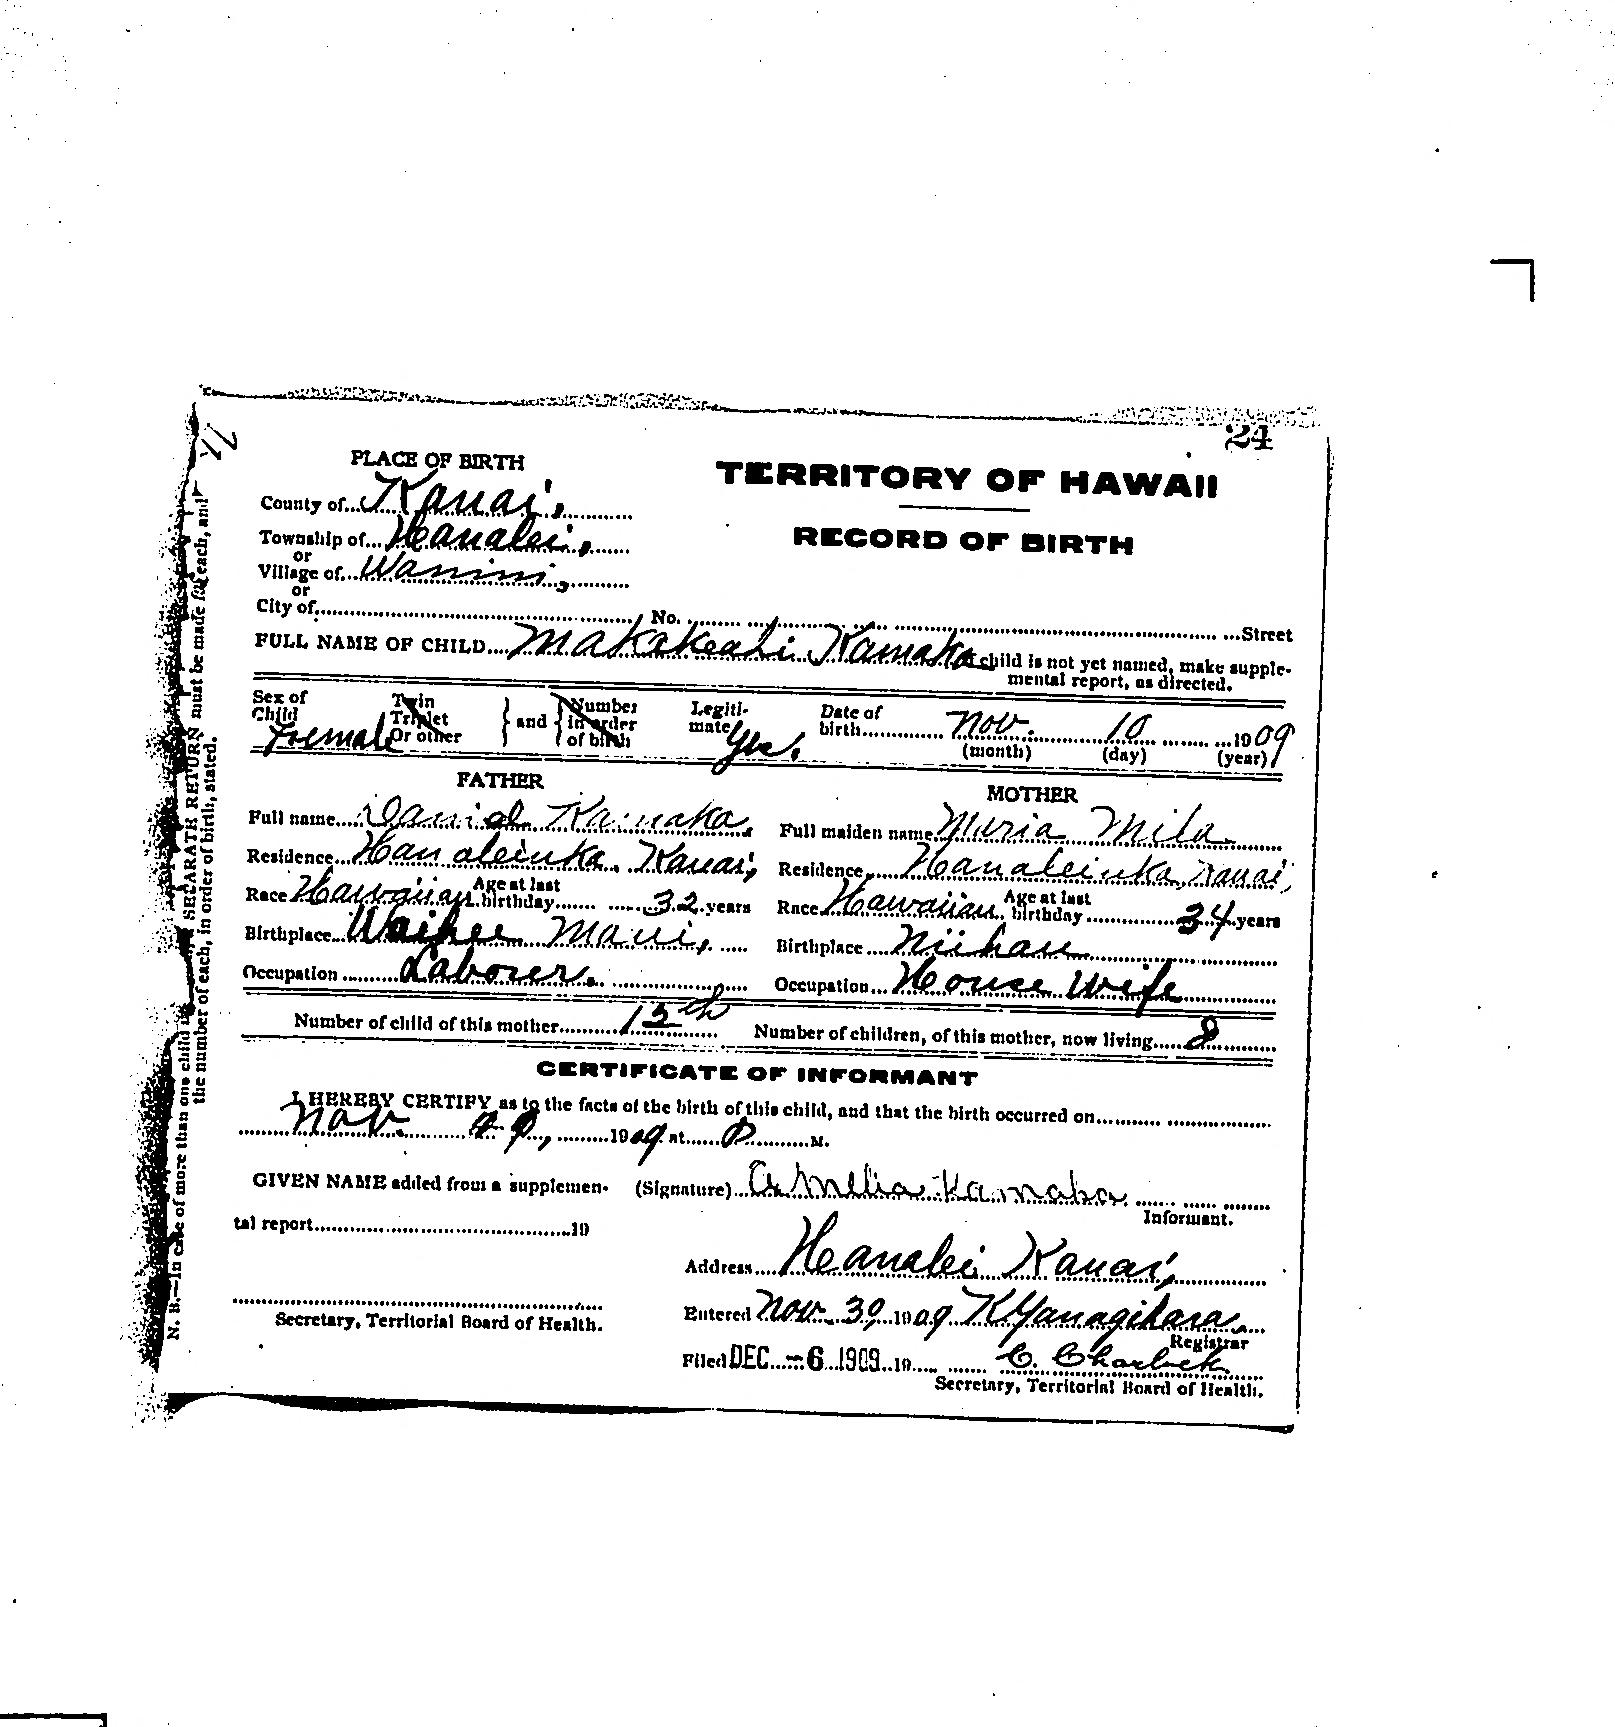 24
PLACE OF BIRTH
TERRITORY OF HAWAII
County of Kauai,
RECORD OF BIRTH
Township of Hanalei,
or
Village of Wanini,
or
City of No. Street
FULL NAME OF CHILD Makakeahi Kamaka child is not yet named, make supple-
mental report, as directed.
Sex of Child Female
Twin Triplet Or other } and { Number in order of birth
Legiti- mate Yes.
Date of birth Nov. 10 1909
(month) (day) (year)
FATHER
MOTHER
Full name Daniel Kamaka.
Full maiden name Muria Mila
Residence Hanaleiuka, Kauai,
Residence Hanaleiuka, Kauai,
Race Hawaiian Age at last birthday 32 years
Race Hawaiian Age at last birthday 34 years
Birthplace Waihee Maui,
Birthplace Niihau
Occupation Laborer.
Occupation House Wife
Number of child of this mother 13th
Number of children, of this mother, now living 8
CERTIFICATE OF INFORMANT
I HEREBY CERTIFY as to the facts of the birth of this child, and that the birth occurred on
Nov. 1909 at P M.
GIVEN NAME added from a supplemen-
(Signature) Amelia Kamaka
Informant.
tal report 19
Address Hanalei Kauai,
Entered Nov. 30, 1909 K Yanagihara
Secretary, Territorial Board of Health.
Registrar
Filed DEC -6 1909 19 C. Charlock
Secretary, Territorial Board of Health.
N. B.—In case of more than one child SEPARATE RETURN must be made for each, and
the number of each, in order of birth, stated.